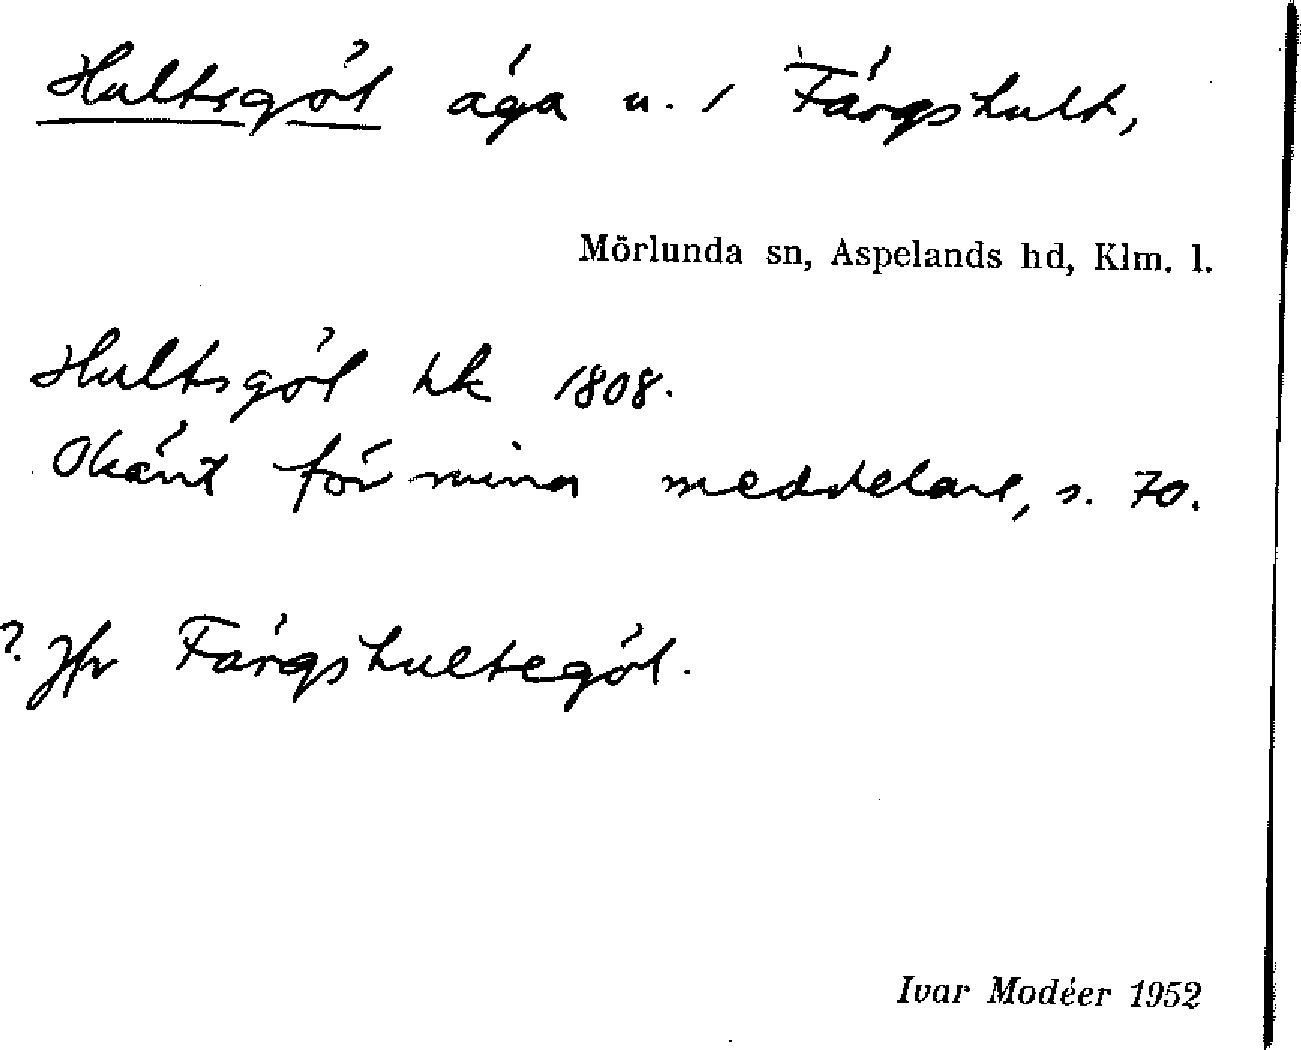 Hultsgöl äga u. / Färgshult,
Mörlunda sn, Aspelands hd, Klm. l.
Hultsgöl hk 1808.
Okänt för mina meddelare, s. 70.
? Jfr Färgshultegöl.
Ivar Modéer 1952